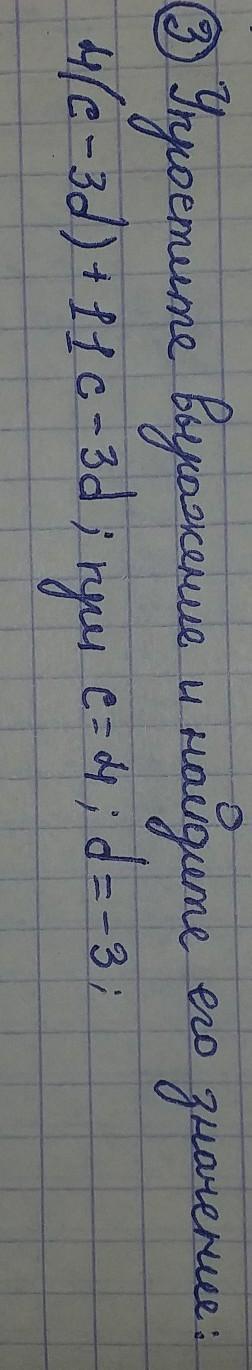 ③ Упростите выражение и найдите его значение:
4(c - 3d) + 11c - 3d; при c = 4; d = -3;